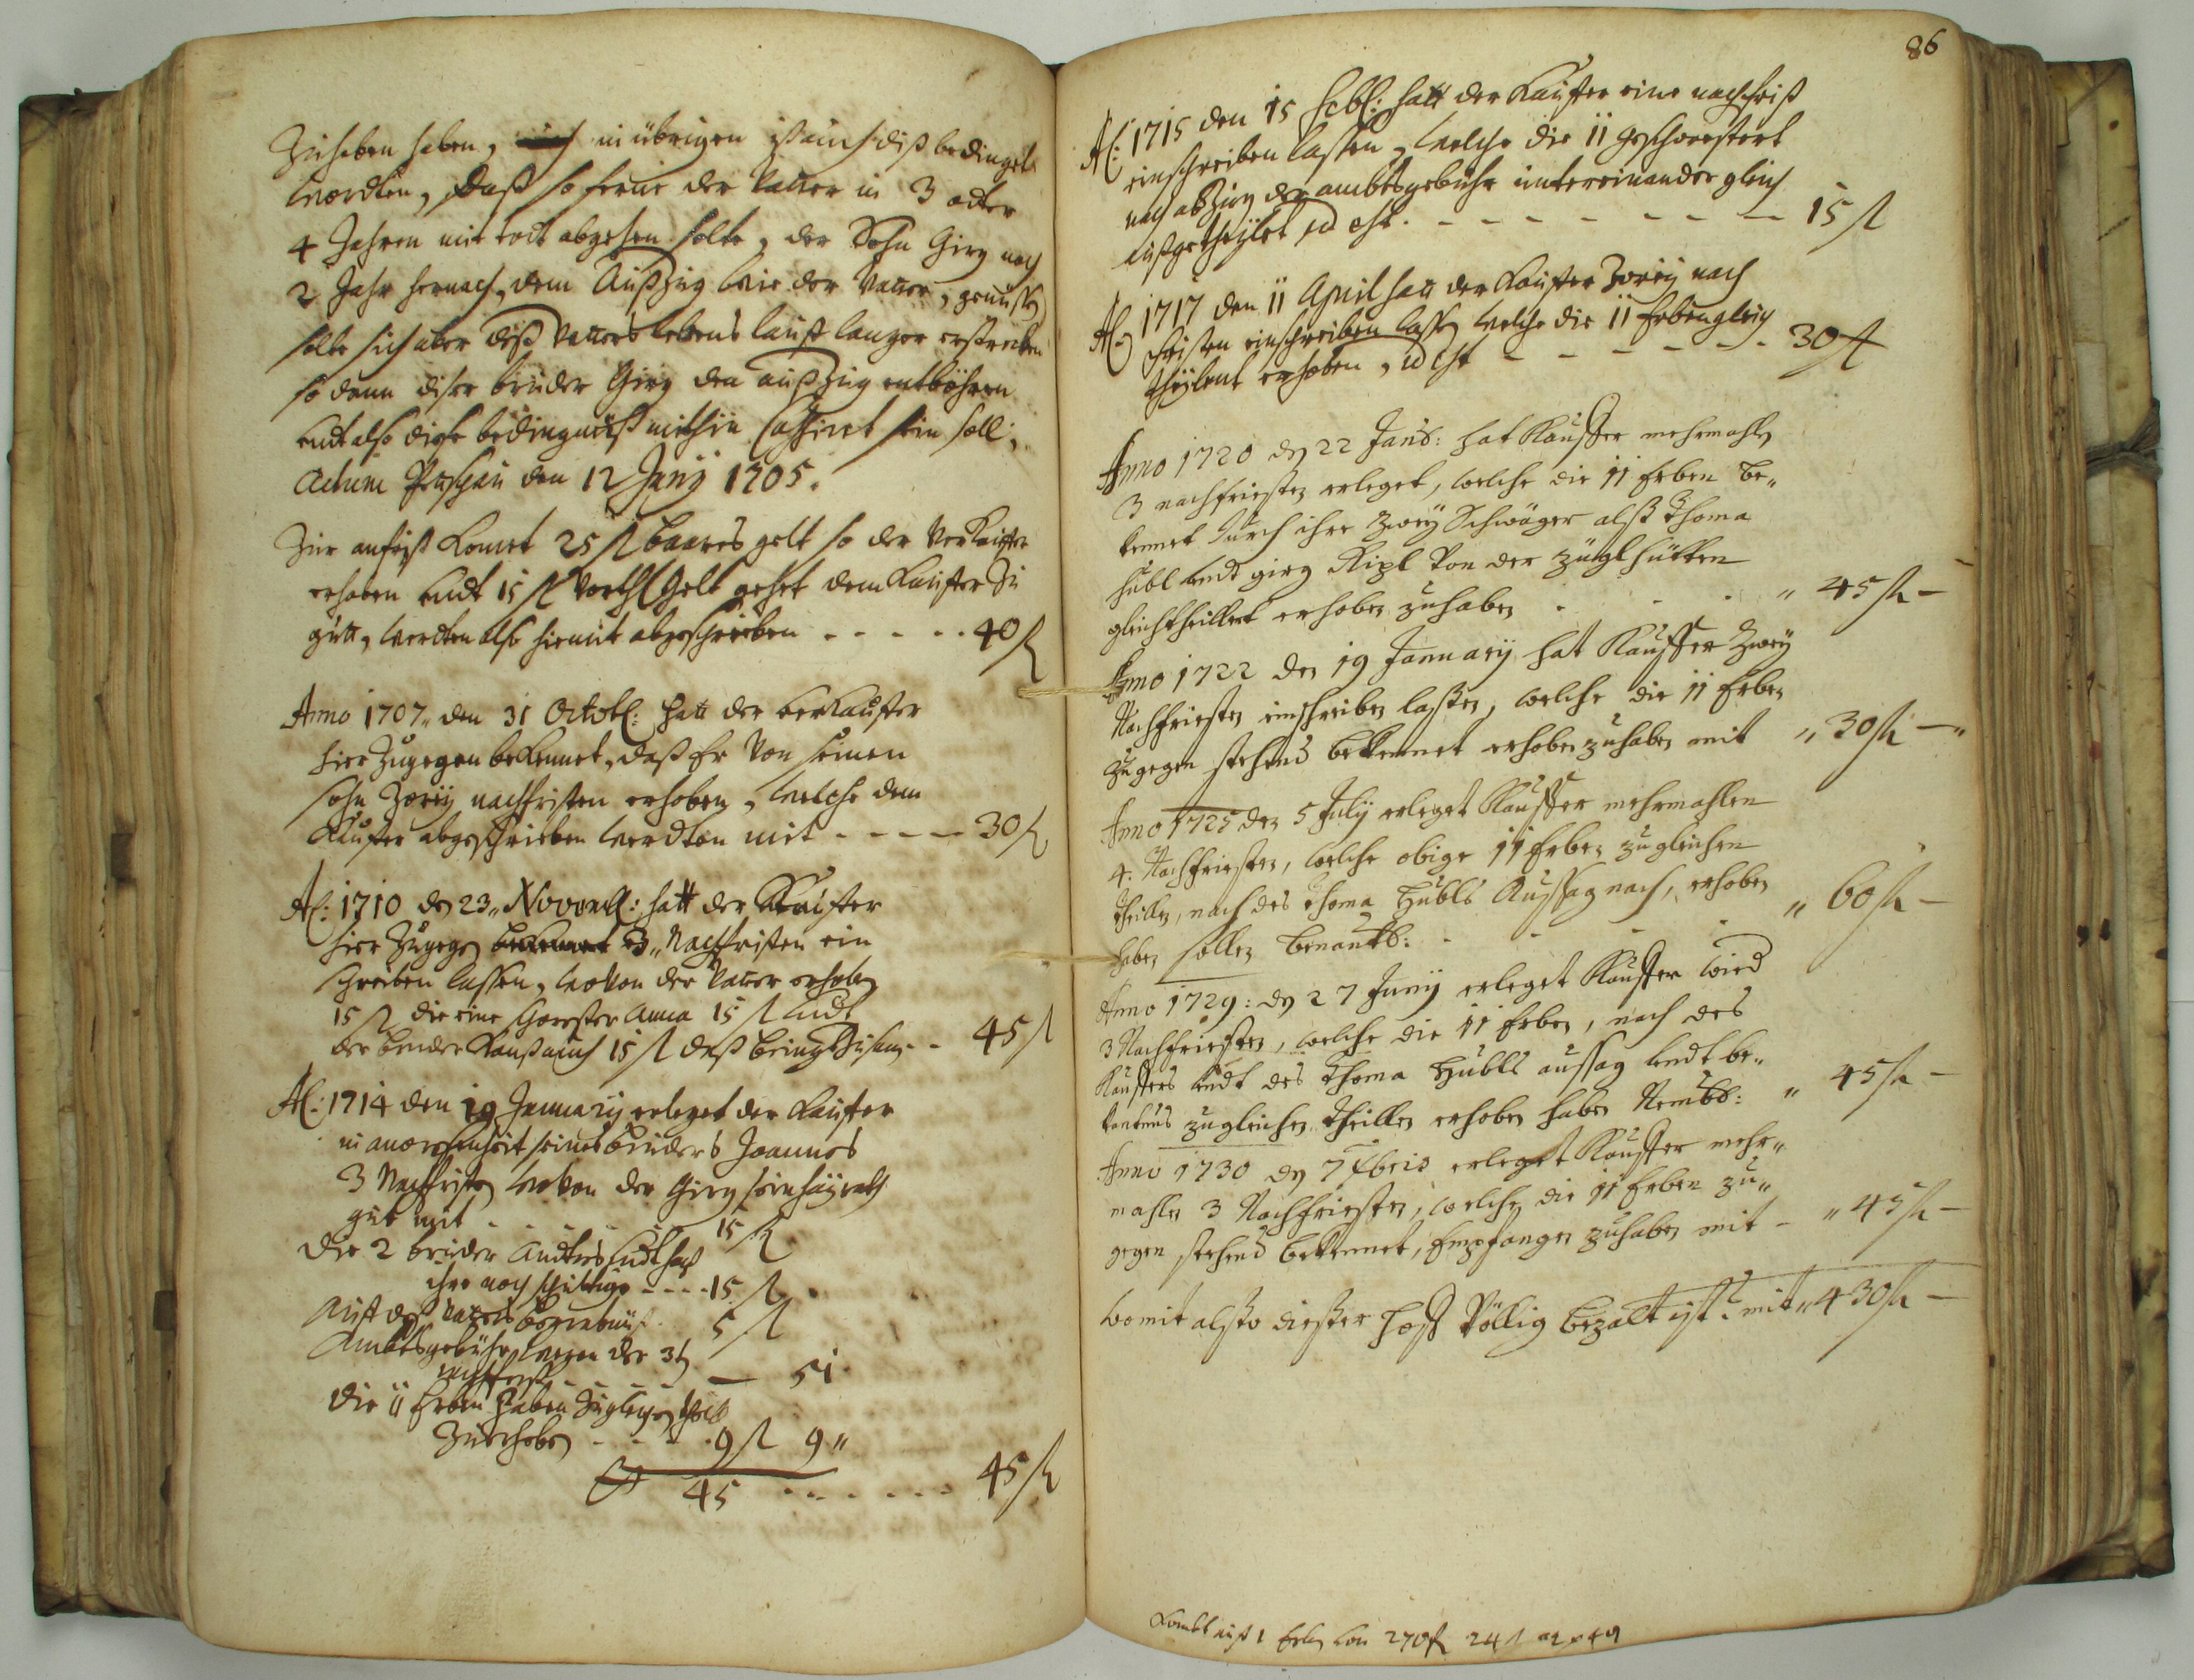 Zuheben haben, in übrigen ist auch diß bedinget
wordten, daß so ferne der Vatter in 3 oder
4 Jahren mit todt abgehen solte, der Sohn Girg noch
2 Jahr hernach, dem Außzug wie der Vatter, genüssen
solte sich aber deß Vatters lebens lauff langer erstrecken
so dann diser bruder Girg den außzug entböhren
undt also diese bedingnuß mithin Cassiret sein soll;
Actum den 12 Juny 1705.
Zur anfrist komet 25 fl baares gelt so der Verkauffer
erhoben undt 15 fl gelt gehet dem Kauffer Zu
gutt, werdten also hiemit abgeschrieben - - - - - 40 fl
Anno 1707 den 31 Octobr: hatt der verkauffer
hier Zugegen bekennet, daß Er von seinen
sohn nachfristen erhoben, welche dem
Kauffer abgeschrieben werdten mit - - - - - 30 fl
Ao: 1710 den 23 Novembr: hatt der Kauffer
hier Zugegen 3 Nachfristen ein
schreiben lassen, wovon der Vatter erhoben
15 fl die eine schwester Anna 15 fl undt
der bruder auch 15 fl - - 45 fl
Ao: 1714 den 19 January erleget der Kauffer
in anwesenheit seines bruders Joannes
3 Nachfristen wovon der Girg sein
gut mit - - - 15 fl
die 2 brüder Andres undt
ihre noch schuldige - - - - 15 fl
Auff des Vatters begrebnuß 5 fl
Ambtsgebühr wegen der 3
nachfrist - - - - - 51
die 11 Erben haben Zugleichen theil
Zuerheben - - - - 9 fl 9
45 - - - - - - 45 fl
86
Ao: 1715 den 15 Febr: hatt der Kauffer eine nachfrist
einschreiben lassen, welche die 11 geschwestert
nach abzug der ambtsgebühr untereinander gleich
außgetheylet id est - - - - - - - 15 fl
Ao 1717 den 11 April hatt der Kauffer Zwey nach
fristen einschreiben lassen welche die 11 Erben gleich
theylent erhoben, id est - - - - - - 30 fl
Anno 1720 den 22 hat Kauffer mehrmahlen
3 nachfriesten erleget, welche die 11 Erben be„
kennet durch ihre Zwey Schwäger alß Thoma
Hübl undt girg Ripl von der züglhütten
gleichtheillent erhoben zuhaben . . . „ 45 fl —
Anno 1722 den 19 January hat Kauffer Zwey
Nachfriesten einschreiben lassen, welche die 11 Erben
zugegen stehend bekennet erhoben zuhaben mit „ 30 fl —„
Anno 1725 den 5 July erleget Kauffer mehrmahlen
4. Nachfriesten, welche obige 11 Erben zugleichen
theillen, nach des Thoma Hübls Aussag nach, erhoben
haben sollen . - - - „ 60 fl —
Anno 1729: den 27 Juny erleget Kauffer wied
3 Nachfriesten, welche die 11 Erben, nach des
Kauffers undt des Thoma Hübls aussag undt be„
zugleichen theillen erhoben haben „ 45 fl —
Anno 1730 den 7 erleget Kauffer mehr„
mahlen 3 Nachfriesten, welche die 11 Erben zu„
gegen stehend bekennet, Empfangen zuhaben mit - „ 45 fl —
womit alßo diesser Völlig bezalt ist: mit „ 430 fl —
Kombt auß 1 Erben von 270 fl 24